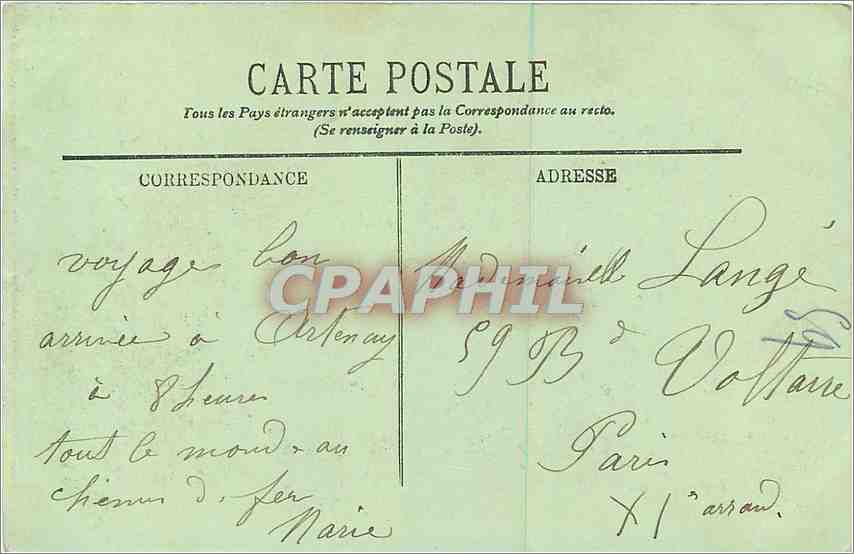 CARTE POSTALE
Tous les Pays étrangers n'acceptent pas la Correspondance au recto.
(Se renseigner à la Poste).
CORRESPONDANCE
ADRESSE
voyage bon
arrivée à Artenay
à 8 heures
tout le monde au
chemin d. fer
Marie
Mademoiselle Langé
59 Bd Voltaire
Paris
XIe arrond.
CPAPHIL